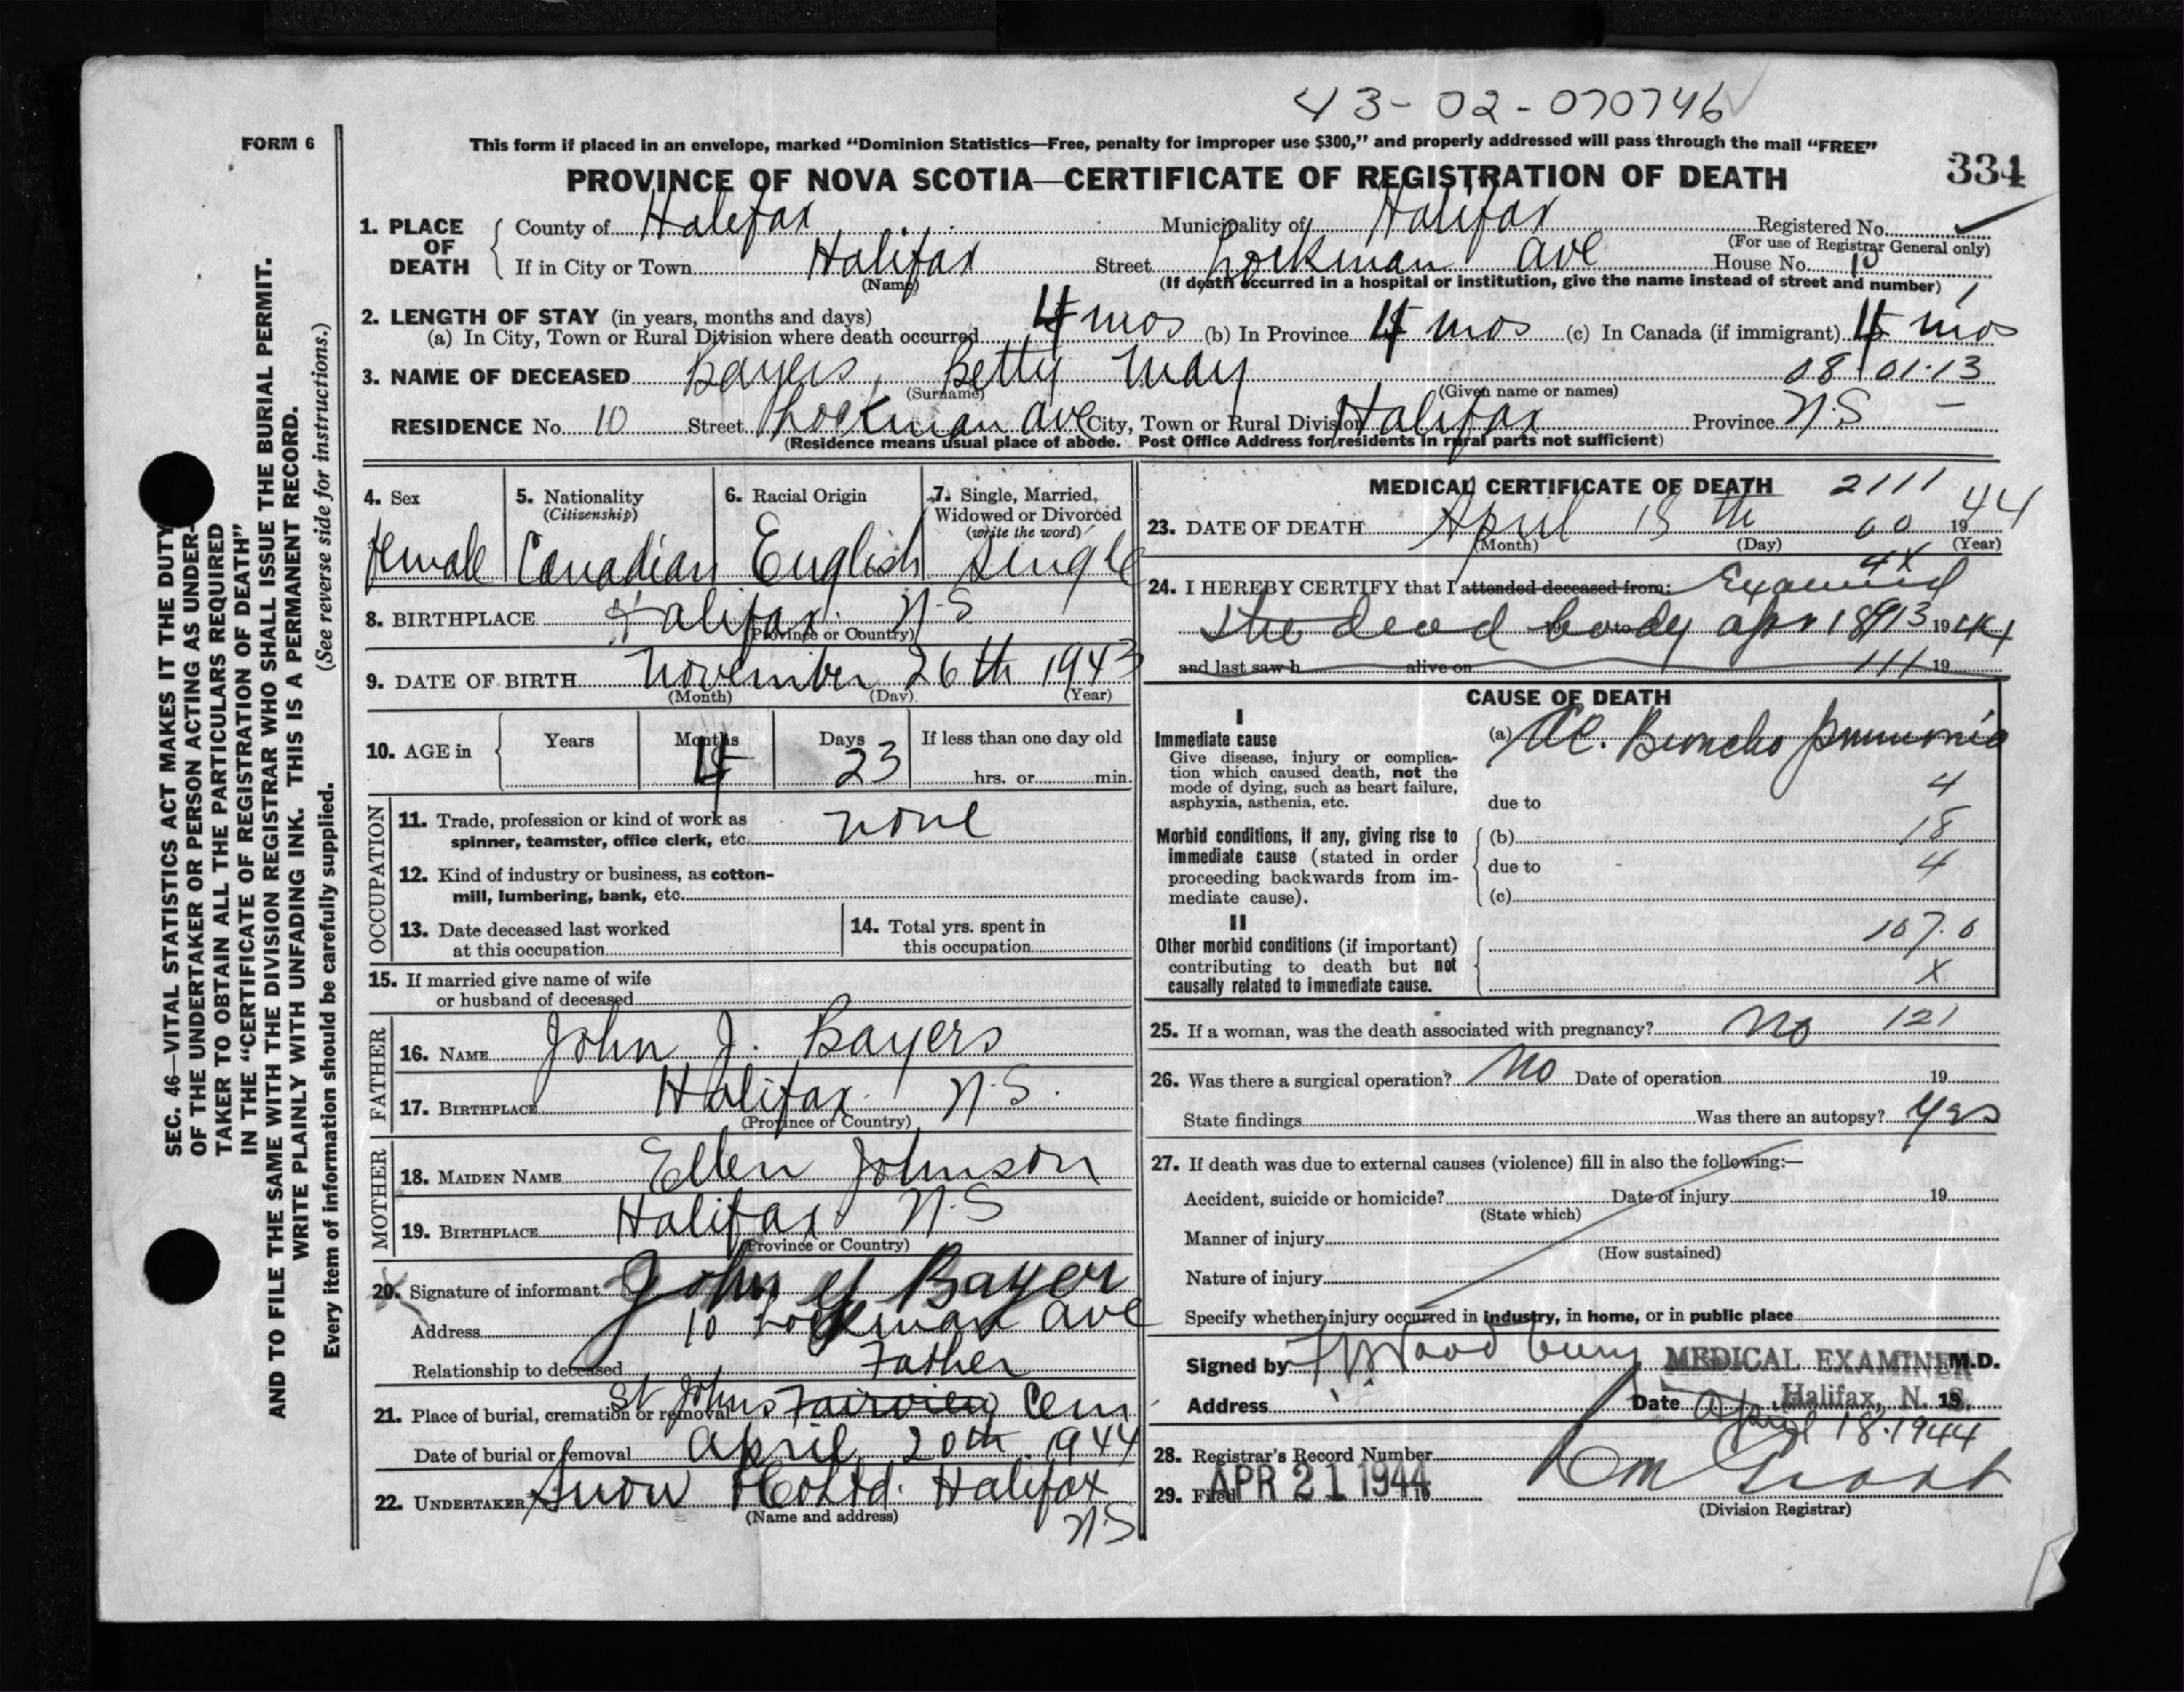 43-02-070746
FORM 6
This form if placed in an envelope, marked "Dominion Statistics—Free, penalty for improper use $300," and properly addressed will pass through the mail "FREE"
PROVINCE OF NOVA SCOTIA—CERTIFICATE OF REGISTRATION OF DEATH
334
1. PLACE OF DEATH
County of Halifax Municipality of Halifax Registered No.
(For use of Registrar General only)
If in City or Town Halifax Street Lockman Ave House No. 10
(Name) (If death occurred in a hospital or institution, give the name instead of street and number)
2. LENGTH OF STAY (in years, months and days)
(a) In City, Town or Rural Division where death occurred 4 mos (b) In Province 4 mos (c) In Canada (if immigrant) 4 mos
3. NAME OF DECEASED Bayers, Betty May 08-01-13
(Surname) (Given name or names)
RESIDENCE No. 10 Street Lockman Ave City, Town or Rural Division Halifax Province N.S
(Residence means usual place of abode. Post Office Address for residents in rural parts not sufficient)
4. Sex
Female
5. Nationality
(Citizenship)
Canadian
6. Racial Origin
English
7. Single, Married, Widowed or Divorced
(write the word)
Single
8. BIRTHPLACE Halifax N.S
(Province or Country)
9. DATE OF BIRTH November 26th 1943
(Month) (Day) (Year)
10. AGE in Years Months 4 Days 23 If less than one day old
hrs. or min.
OCCUPATION
11. Trade, profession or kind of work as
spinner, teamster, office clerk, etc. none
12. Kind of industry or business, as cotton-
mill, lumbering, bank, etc.
13. Date deceased last worked
at this occupation
14. Total yrs. spent in
this occupation
15. If married give name of wife
or husband of deceased
FATHER
16. NAME John J. Bayers
17. BIRTHPLACE Halifax N.S.
(Province or Country)
MOTHER
18. MAIDEN NAME Ellen Johnson
19. BIRTHPLACE Halifax N.S
(Province or Country)
20. Signature of informant John J Bayer
Address 10 Lockman Ave
Relationship to deceased Father
21. Place of burial, cremation or removal St Johns Fairview Cem
Date of burial or removal April 20th 1944
22. UNDERTAKER Snow & Co Ltd. Halifax
(Name and address) N.S
MEDICAL CERTIFICATE OF DEATH 2111
23. DATE OF DEATH April 18th 00 1944
(Month) (Day) (Year)
4X
24. I HEREBY CERTIFY that I attended deceased from: Examined
the dead body Apr 18 1944
and last saw h alive on 111 19
CAUSE OF DEATH
I
Immediate cause
Give disease, injury or complica-
tion which caused death, not the
mode of dying, such as heart failure,
asphyxia, asthenia, etc.
(a) Ac. Broncho pneumonia
4
due to
Morbid conditions, if any, giving rise to
immediate cause (stated in order
proceeding backwards from im-
mediate cause).
(b) 18
due to 4
(c)
II
Other morbid conditions (if important)
contributing to death but not
causally related to immediate cause.
107.0
X
25. If a woman, was the death associated with pregnancy? No 121
26. Was there a surgical operation? No Date of operation 19
State findings Was there an autopsy? Yes
27. If death was due to external causes (violence) fill in also the following:—
Accident, suicide or homicide? Date of injury 19
(State which)
Manner of injury
(How sustained)
Nature of injury
Specify whether injury occurred in industry, in home, or in public place
Signed by Woodbury MEDICAL EXAMINER M.D.
Address Date Halifax, N. S. 19
April 18.1944
28. Registrar's Record Number
29. Filed APR 21 1944 19
(Division Registrar)
SEC. 46—VITAL STATISTICS ACT MAKES IT THE DUTY
OF THE UNDERTAKER OR PERSON ACTING AS UNDER-
TAKER TO OBTAIN ALL THE PARTICULARS REQUIRED
IN THE "CERTIFICATE OF REGISTRATION OF DEATH"
AND TO FILE THE SAME WITH THE DIVISION REGISTRAR WHO SHALL ISSUE THE BURIAL PERMIT.
WRITE PLAINLY WITH UNFADING INK. THIS IS A PERMANENT RECORD.
Every item of information should be carefully supplied. (See reverse side for instructions.)